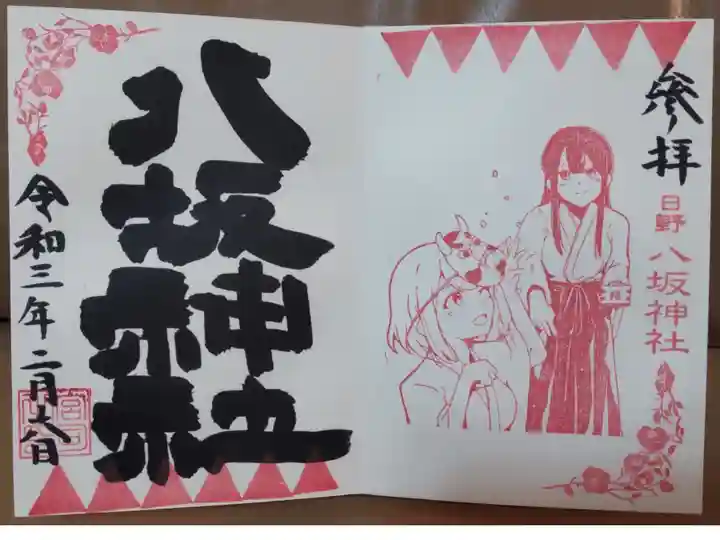 参拝
日野 八坂神社
八坂神社
令和三年二月